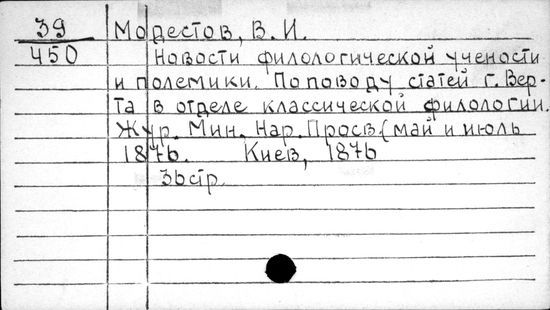 39 Модестов, В. И.
450 Новости филологической учености
и полемики. По поводу статей г. Вер-
та в отделе классической филологии.
Жур. Мин. Нар. Просв. (май и июль
1876. Киев, 1876
36стр.